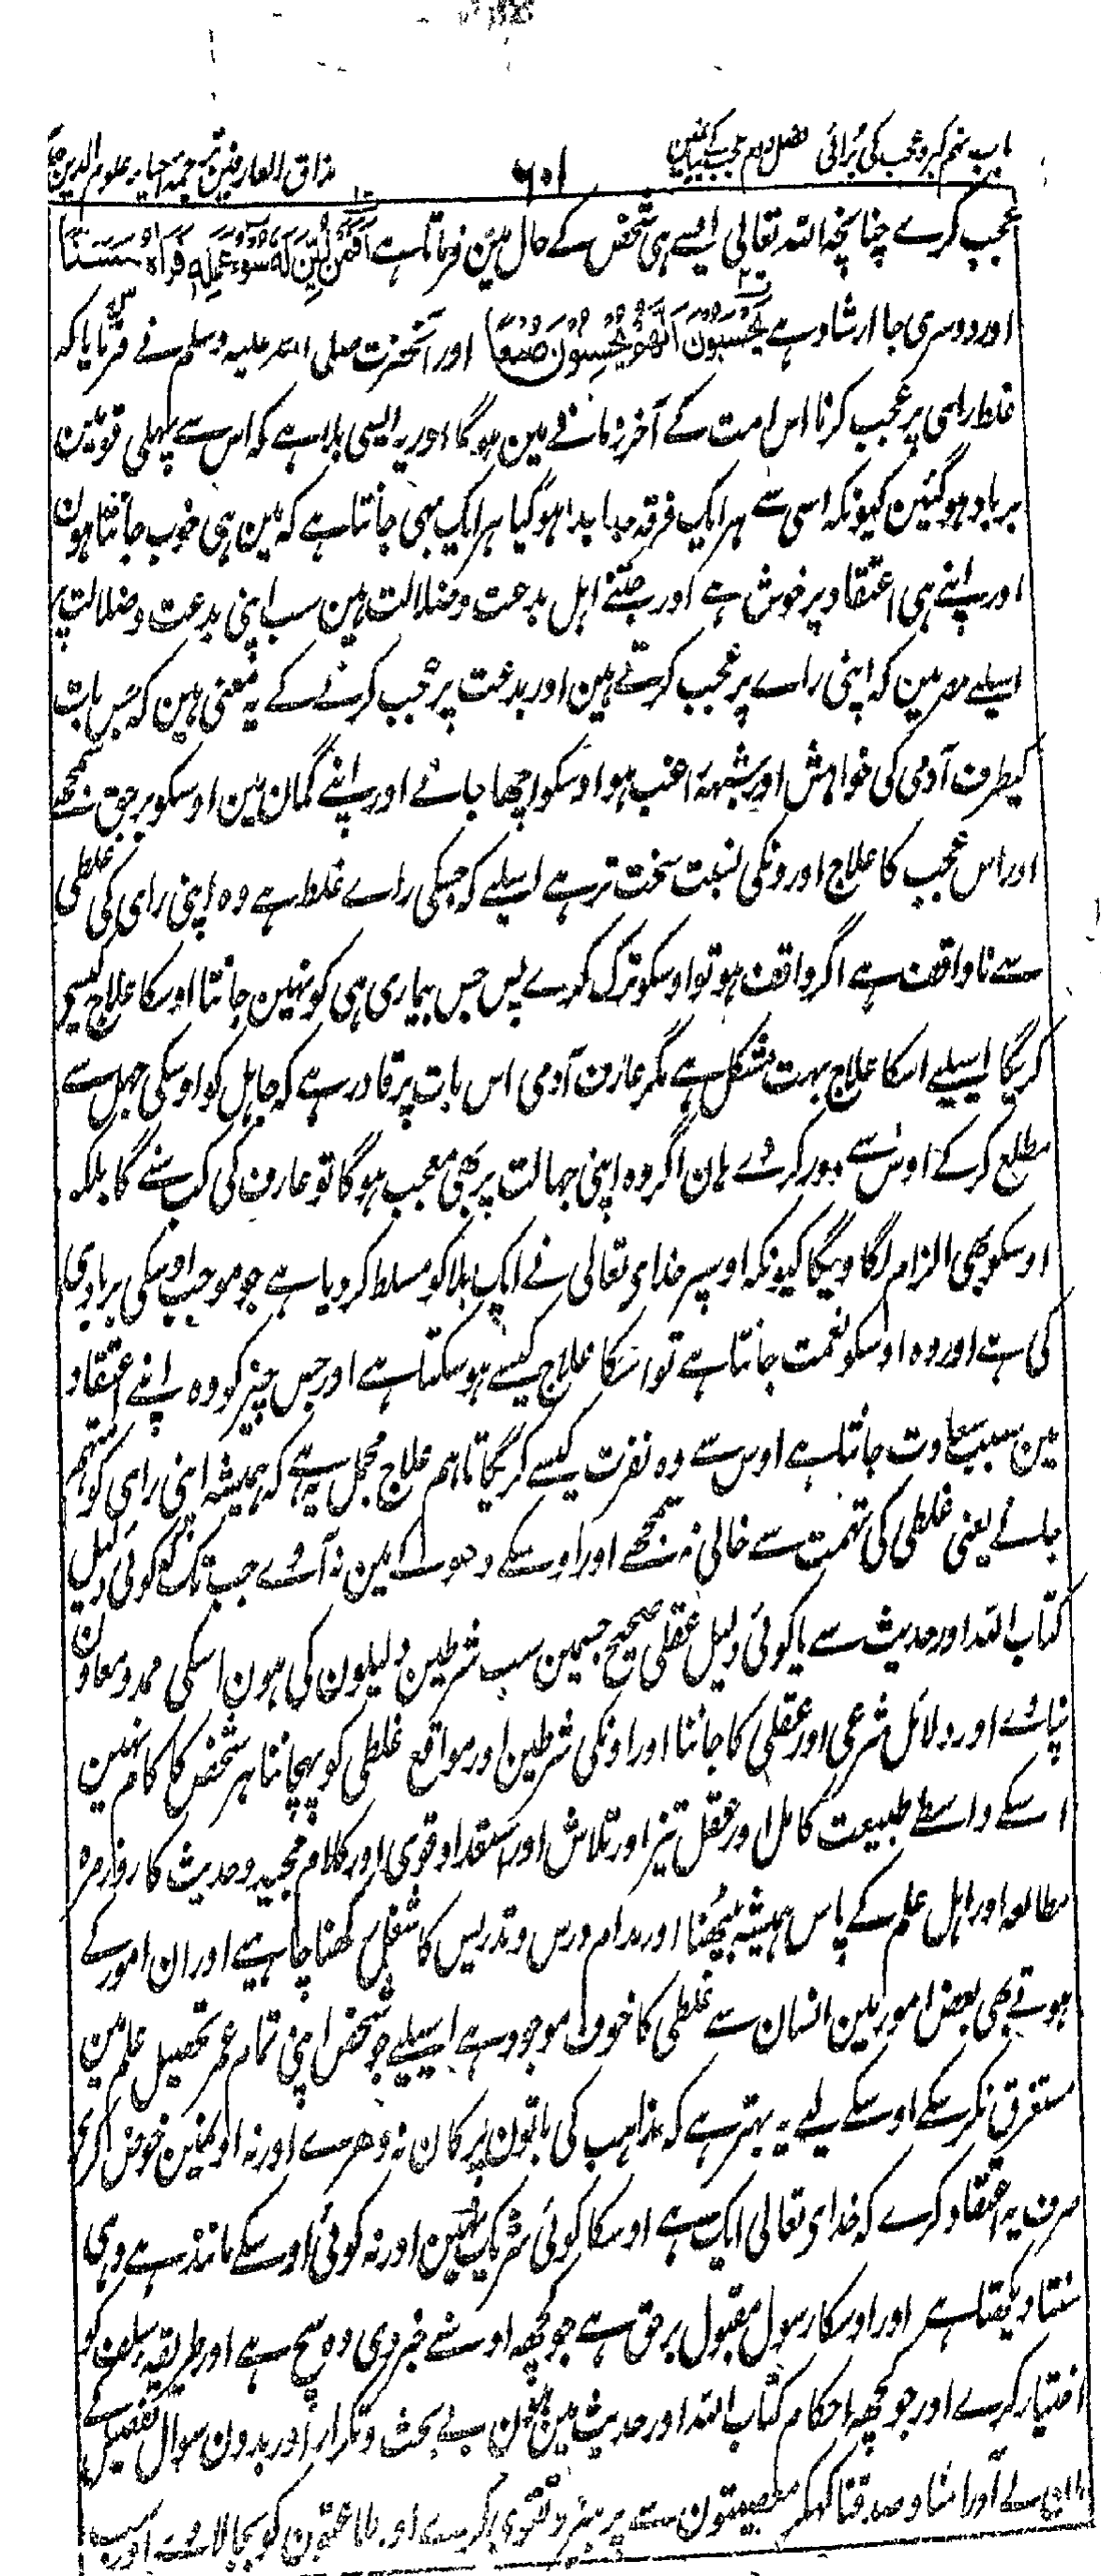 باب نہم کبر و عجب کی برائی فصل دوم عجب کے بیان مین
۶۰۱
مذاق العارفین ترجمہ احیاء علوم الدین جلد
عجب کرے چنانچہ اللہ تعالی ایسے ہی شخص کے حال مین فرماتا ہے اَفَمَنْ زُیِّنَ لَهٗ سُوْءُ عَمَلِهٖ فَرَاٰهُ حَسَنًا
اور دوسری جا ارشاد ہے یَحْسَبُوْنَ اَنَّهُمْ یُحْسِنُوْنَ صُنْعًا اور آنحضرت صلی اللہ علیہ وسلم نے فرمایا کہ
غلط راسی پر عجب کرنا اس امت کے آخر زمانے مین ہوگا اور یہ ایسی بلا ہے کہ اس سے پہلی قومین
برباد ہوگئین کیونکہ اسی سے ہر ایک فرقہ جدا جدا ہوگیا ہر ایک یہی جانتا ہے کہ مین ہی خوب جانتا ہون
اور اپنے ہی اعتقاد پر خوش ہے اور جتنے اہل بدعت وضلالت ہین سب اپنی بدعت وضلالت پر
اسلیے مصر ہین کہ اپنی راے پر عجب کرتے ہین اور بدعت پر عجب کرنے کے یہ معنی ہین کہ جس بات
کیطرف آدمی کی خواہش اور شبہہ راغب ہو اوسکو اچھا جانے اور اپنے گمان مین اوسکو برحق سمجھے
اور اس عجب کا علاج اورونکی نسبت سخت تر ہے اسلیے کہ جسکی راے غلط ہے وہ اپنی رای کی غلطی
سے ناواقف ہے اگر واقف ہو تو اوسکو ترک کرے پس جس بیماری ہی کو نہین جانتا اوسکا علاج کیسے
کریگا اسیلیے اسکا علاج بہت مشکل ہے مگر عارف آدمی اس بات پر قادر ہے کہ جاہل کو اوسکی جہل سے
مطلع کرکے اوس سے دور کردے ہان اگر وہ اپنی جہالت پر بھی معجب ہوگا تو عارف کی کب سنے گا بلکہ
اوسکو بھی الزام لگا دیگا کیونکہ اوسپر خدای تعالی نے ایک بلا کو مسلط کردیا ہے جو موجب اوسکی بربادی
کی ہے اور وہ اوسکو نعمت جانتا ہے تو اسکا علاج کیسے ہوسکتا ہے اور جس چیز کو وہ اپنے اعتقاد
مین سبب سعادت جانتا ہے اوس سے وہ نفرت کیسے کریگا تاہم علاج مجمل یہ ہے کہ ہمیشہ اپنی رای کو متہم
جانے یعنی غلطی کی تہمت سے خالی نہ سمجھے اور اوسکے دھوکے مین نہ آوے جب تک کہ کوئی دلیل
کتاب اللہ اور حدیث سے یا کوئی دلیل عقلی صحیح جسمین سب شرطین دلیلون کی ہون اسکی ممد ومعاون
نپاوے اور دلائل شرعی اور عقلی کا جاننا اور اونکی شرطین اور مواقع غلطی کو پہچاننا ہر شخص کا کام نہین
اسکے واسطے طبیعت کامل اور عقل تیز اور تلاش اور استعداد قوی اور کلام مجید وحدیث کا روزمرہ
مطالعہ اور اہل علم کے پاس ہمیشہ بیٹھنا اور مدام درس وتدریس کا شغل رکھنا چاہیے اور ان امور کے
ہوتے بھی بعض امور مین انسان سے غلطی کا خوف موجود ہے اسیلیے جو شخص اپنی تمام عمر تحصیل علم مین
مستغرق نکرسکے اوسکے لیے یہ بہتر ہے کہ مذاہب کی باتون پر کان نہ دھرے اور نہ اونمین خوض کرے
صرف یہ اعتقاد کرے کہ خدای تعالی ایک ہے اوسکا کوئی شریک نہین اور نہ کوئی اوسکے مانند ہے وہی
سنتا دیکھتا ہے اور اوسکا رسول مقبول برحق ہے جو کچھ اوسنے خبر دی وہ سچ ہے اور طریقہ سلف کو
اختیار کرے اور جو کچھ احکام کتاب اللہ اور حدیث مین ہین بے بحث وتکرار اور بدون سوال تفصیل کے
اور آمنا وصدقنا کہکر معصیتون سے پرہیز وتقوی کرے اور طاعتون کو بجالاوے اور سب